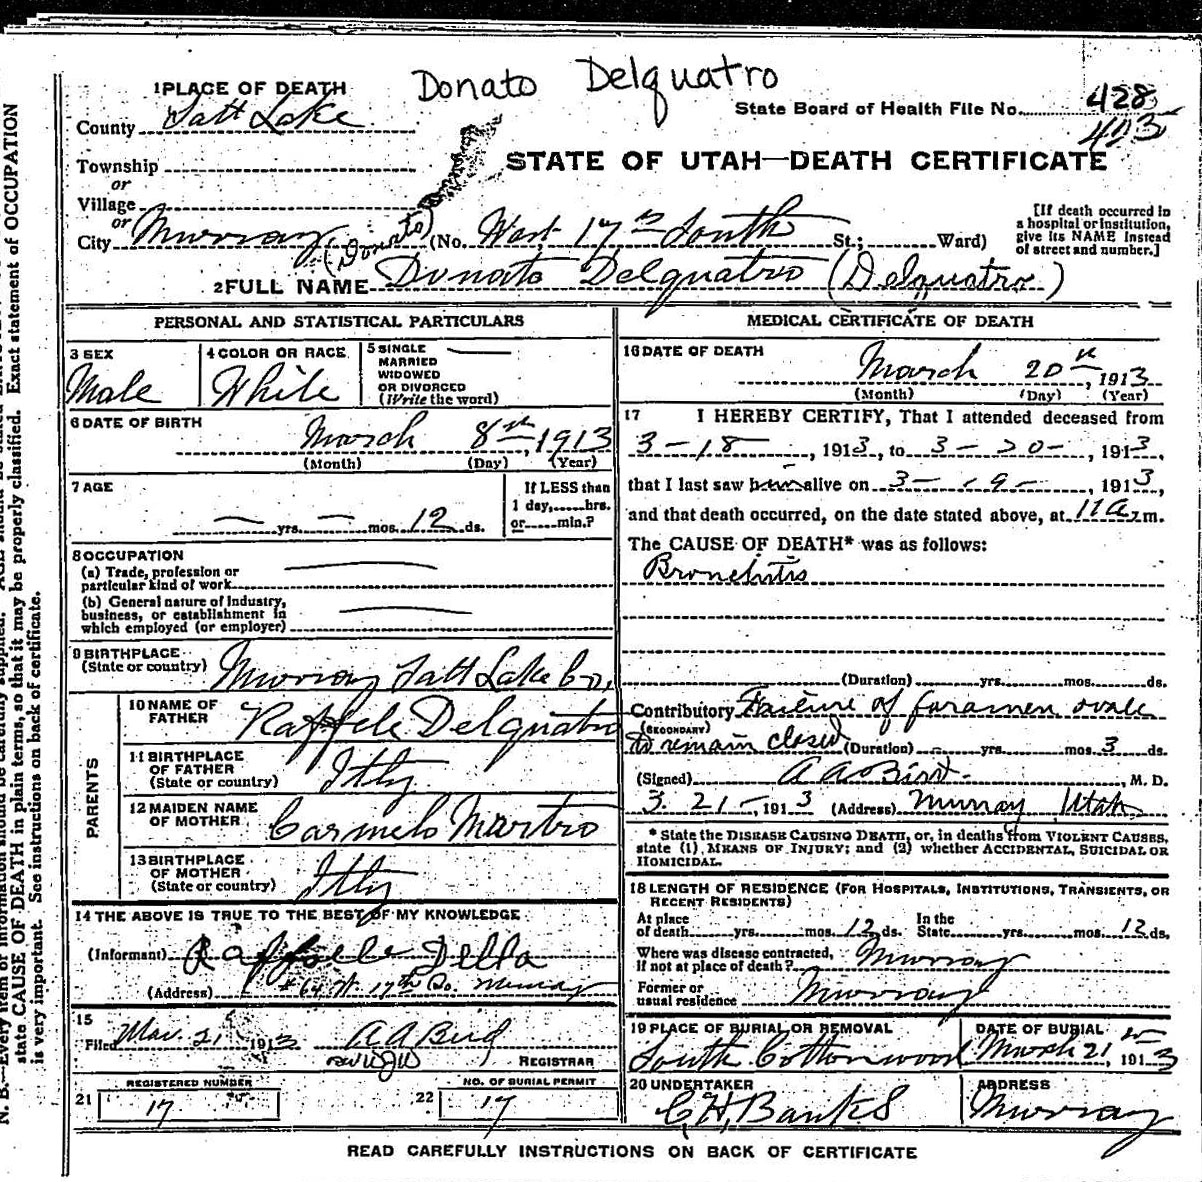 Donato Delquatro
1 PLACE OF DEATH
County Salt Lake
State Board of Health File No. 428
423
Township
or
Village
or
City Murray
STATE OF UTAH—DEATH CERTIFICATE
(No. West 17th South St.; Ward)
[If death occurred in
a hospital or institution,
give its NAME instead
of street and number.]
(Donato)
2 FULL NAME Donato Delquatro (Delquatro)
PERSONAL AND STATISTICAL PARTICULARS
3 SEX
Male
4 COLOR OR RACE
White
5 SINGLE
MARRIED
WIDOWED
OR DIVORCED
(Write the word)
6 DATE OF BIRTH
March 8th, 1913
(Month) (Day) (Year)
7 AGE
— yrs. — mos. 12 ds.
If LESS than
1 day,......hrs.
or......min.?
8 OCCUPATION
(a) Trade, profession or
particular kind of work
(b) General nature of Industry,
business, or establishment in
which employed (or employer)
9 BIRTHPLACE
(State or country) Murray Salt Lake Co.
PARENTS
10 NAME OF
FATHER Raffele Delquatro
11 BIRTHPLACE
OF FATHER
(State or country) Itly
12 MAIDEN NAME
OF MOTHER Carmelo Martro
13 BIRTHPLACE
OF MOTHER
(State or country) Itly
14 THE ABOVE IS TRUE TO THE BEST OF MY KNOWLEDGE
(Informant) Raffaele Della
(Address) #64 W. 17th So. Murray
15
Filed Mar. 21, 1913 A A Bird
REGISTRAR
21 REGISTERED NUMBER
17
22 NO. OF BURIAL PERMIT
17
MEDICAL CERTIFICATE OF DEATH
16 DATE OF DEATH
March 20th, 1913
(Month) (Day) (Year)
17 I HEREBY CERTIFY, That I attended deceased from
3-18-, 1913, to 3-20-, 1913,
that I last saw him alive on 3- 19-, 1913,
and that death occurred, on the date stated above, at 11 a. m.
The CAUSE OF DEATH* was as follows:
Bronchitis
(Duration) yrs. mos. ds.
Contributory Failure of foramen ovale
(SECONDARY)
to remain closed (Duration) yrs. mos. 3 ds.
(Signed) A A Bird, M. D.
3. 21-, 1913 (Address) Murray Utah
* State the DISEASE CAUSING DEATH, or, in deaths from VIOLENT CAUSES,
state (1), MEANS OF INJURY; and (2) whether ACCIDENTAL, SUICIDAL OR
HOMICIDAL.
18 LENGTH OF RESIDENCE (FOR HOSPITALS, INSTITUTIONS, TRANSIENTS, OR
RECENT RESIDENTS)
At place
of death yrs. mos. 12 ds.
In the
State yrs. mos. 12 ds.
Where was disease contracted,
if not at place of death? Murray
Former or
usual residence Murray
19 PLACE OF BURIAL OR REMOVAL
South Cottonwood
DATE OF BURIAL
March 21, 1913
20 UNDERTAKER
C. H. Banks
ADDRESS
Murray
READ CAREFULLY INSTRUCTIONS ON BACK OF CERTIFICATE
state CAUSE OF DEATH in plain terms, so that it may be properly classified. Exact statement of OCCUPATION
is very important. See instructions on back of certificate.